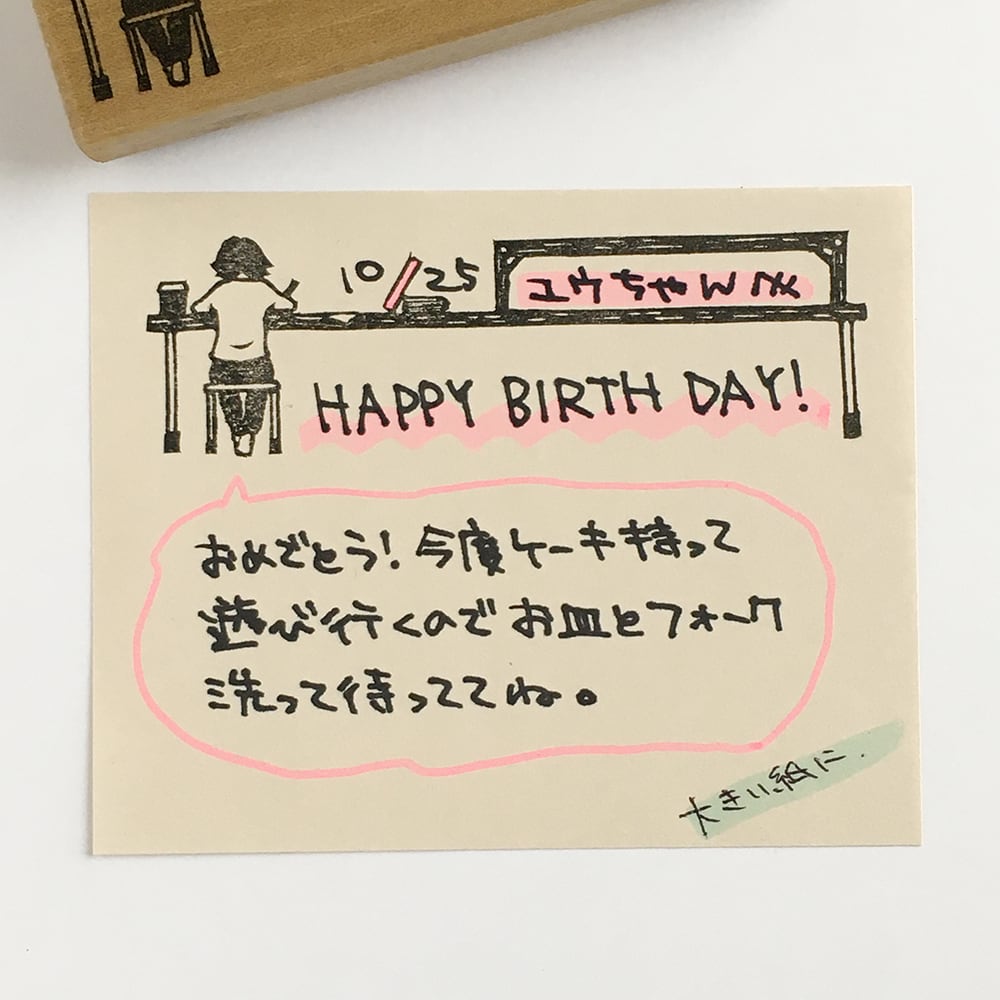 10/25
ユウちゃんへ
HAPPY BIRTH DAY!
おめでとう!今度ケーキ持って
遊び行くのでお皿とフォーク
洗って待っててね。
大きい紙に.